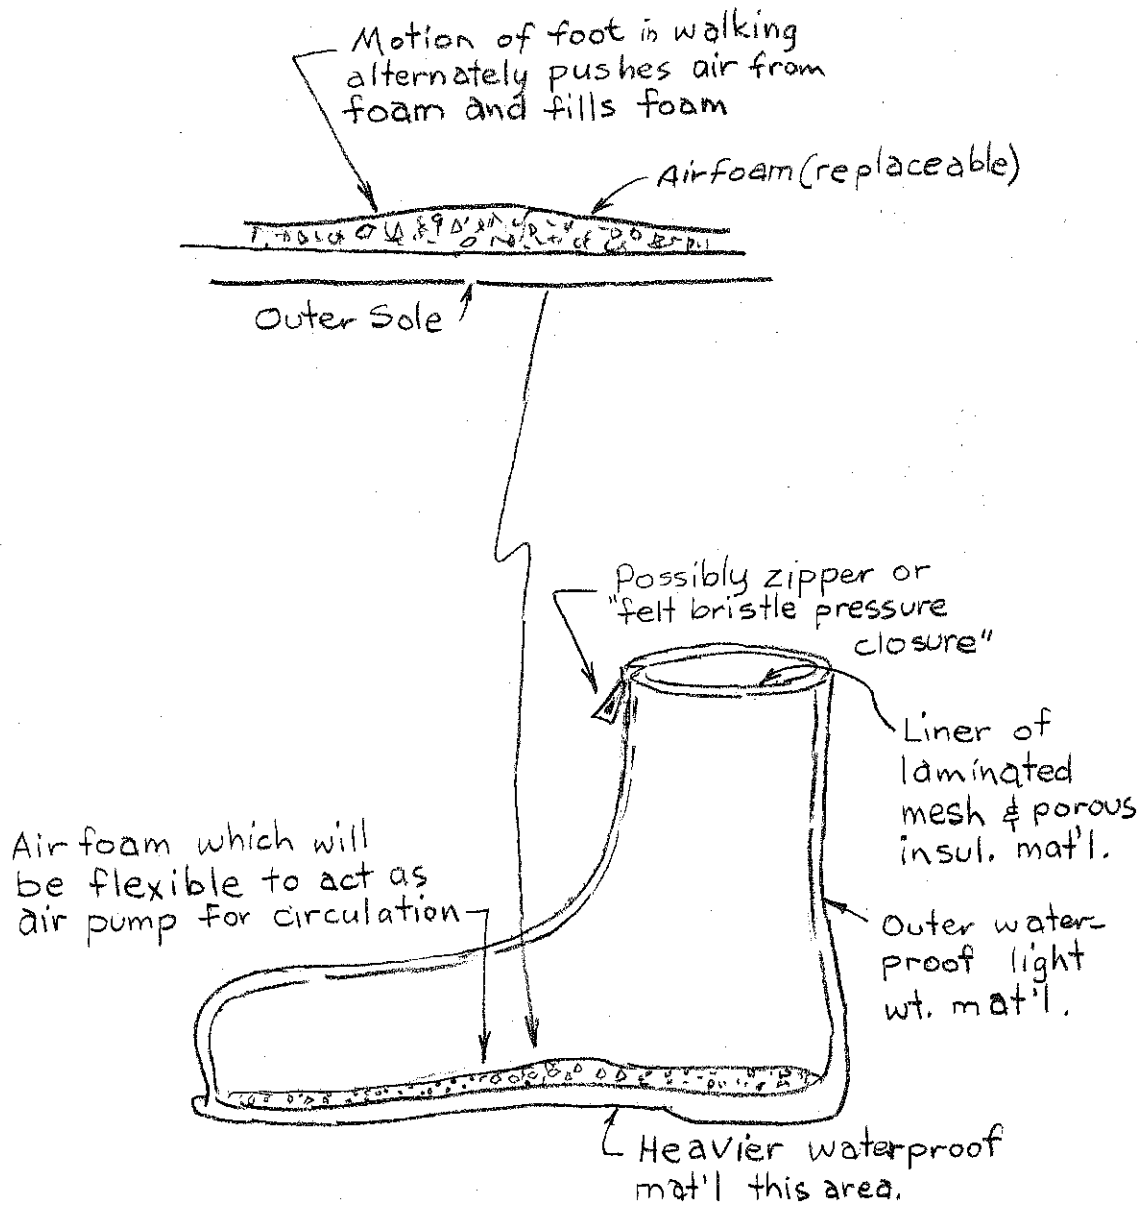 Motion of foot in walking
alternately pushes air from
foam and fills foam
Airfoam (replaceable)
Outer Sole
Possibly zipper or
"felt bristle pressure
closure"
Liner of
laminated
mesh & porous
insul. mat'l.
Air foam which will
be flexible to act as
air pump for circulation
Outer water-
proof light
wt. mat'l.
Heavier waterproof
mat'l this area.